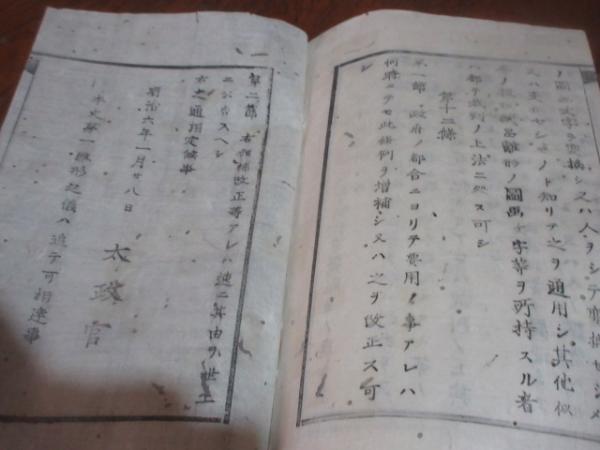 ノ圖畫文字ヲ変換シ又ハ人ヲシテ変換セシメ
又ハ変セシモノト知リテ之ヲ通用シ其他似
ノ圖画文字等ヲ所持スル者
ハ都テ裁判ノ上法ニ処ス可シ
第十二條
第一節 政府ノ都合ニヨリテ費用ノ事アレハ
何時ニテモ此條例ヲ増補シ又ハ之ヲ改正ス可
シ
第二節 右増補改正等アレハ速ニ其由ヲ世上
ニ公告スヘシ
右之通相定候事
明治六年一月廿八日
太政官
本文第一雛形之儀ハ追テ可相達事